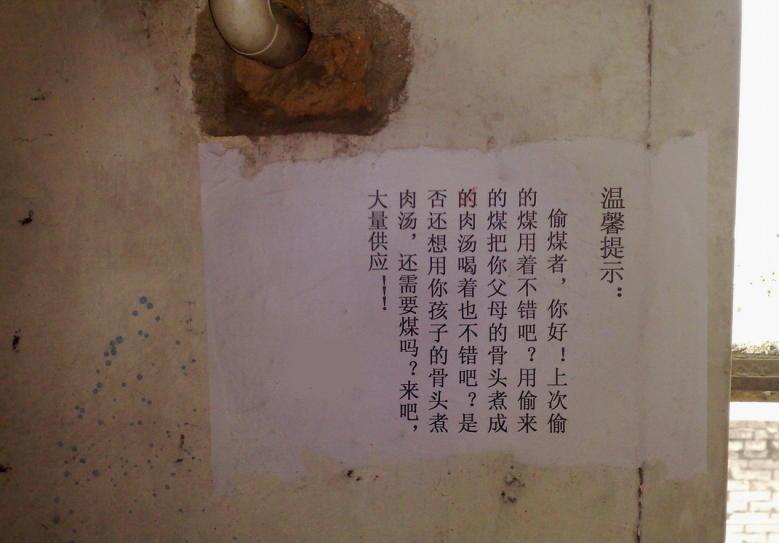 温馨提示：
偷煤者，你好！上次偷
的煤用着不错吧？用偷来
的煤把你父母的骨头煮成
的肉汤喝着也不错吧？是
否还想用你孩子的骨头煮
肉汤，还需要煤吗？来吧，
大量供应！！！